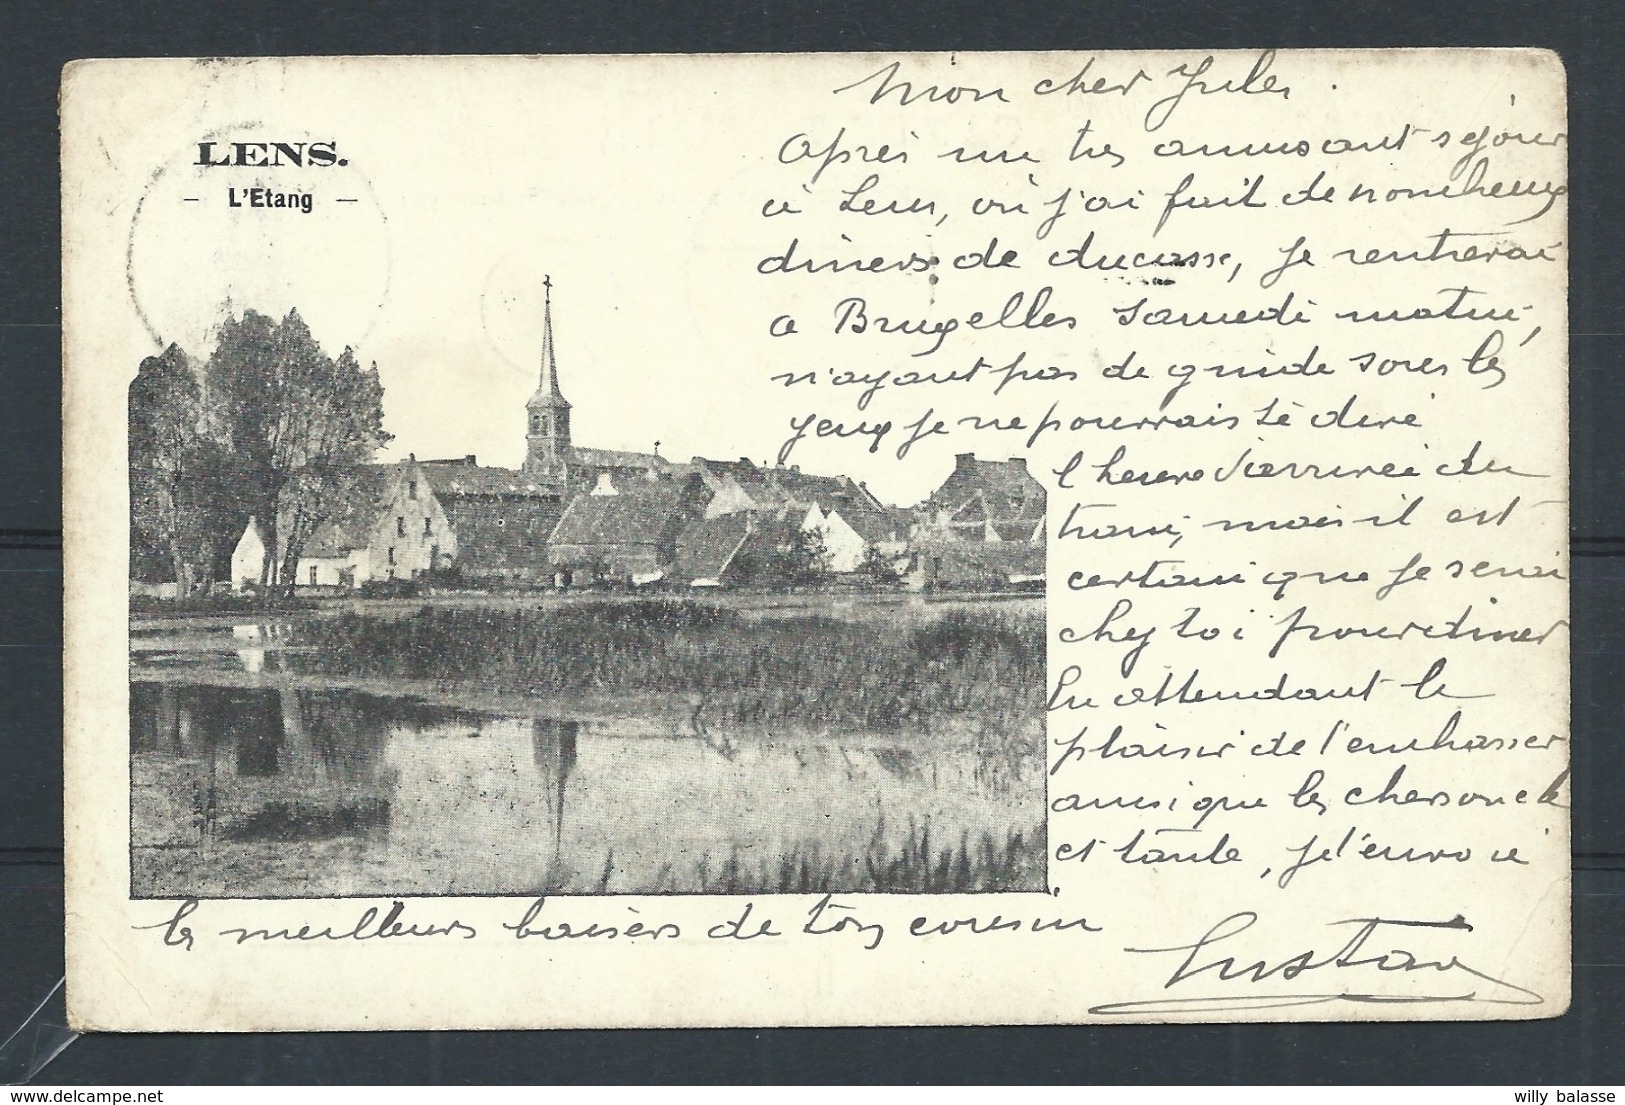 LENS.
- L'Etang -
Mon cher Jules.
Après un très amusant séjour
à Lens, où j'ai fait de nombreux
dîners de ducasse, je rentrerai
à Bruxelles samedi matin,
n'ayant pas de guide sous les
yeux je ne pourrais te dire
l'heure d'arrivée du
train, mais il est
certain que je serai
chez toi pour diner
En attendant le
plaisir de t'embrasser
ainsi que les chers oncle
et tante, je t'envoie
les meilleurs baisers de ton cousin
Gustave
willy balasse